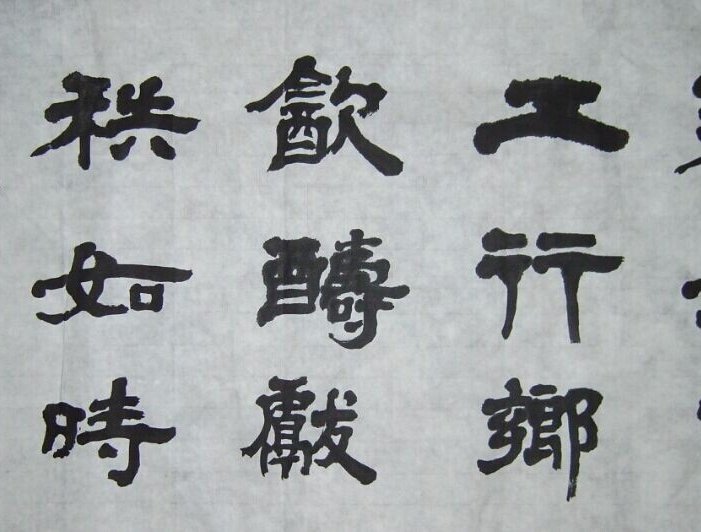 工行鄉
㱃醻獻
秩如時